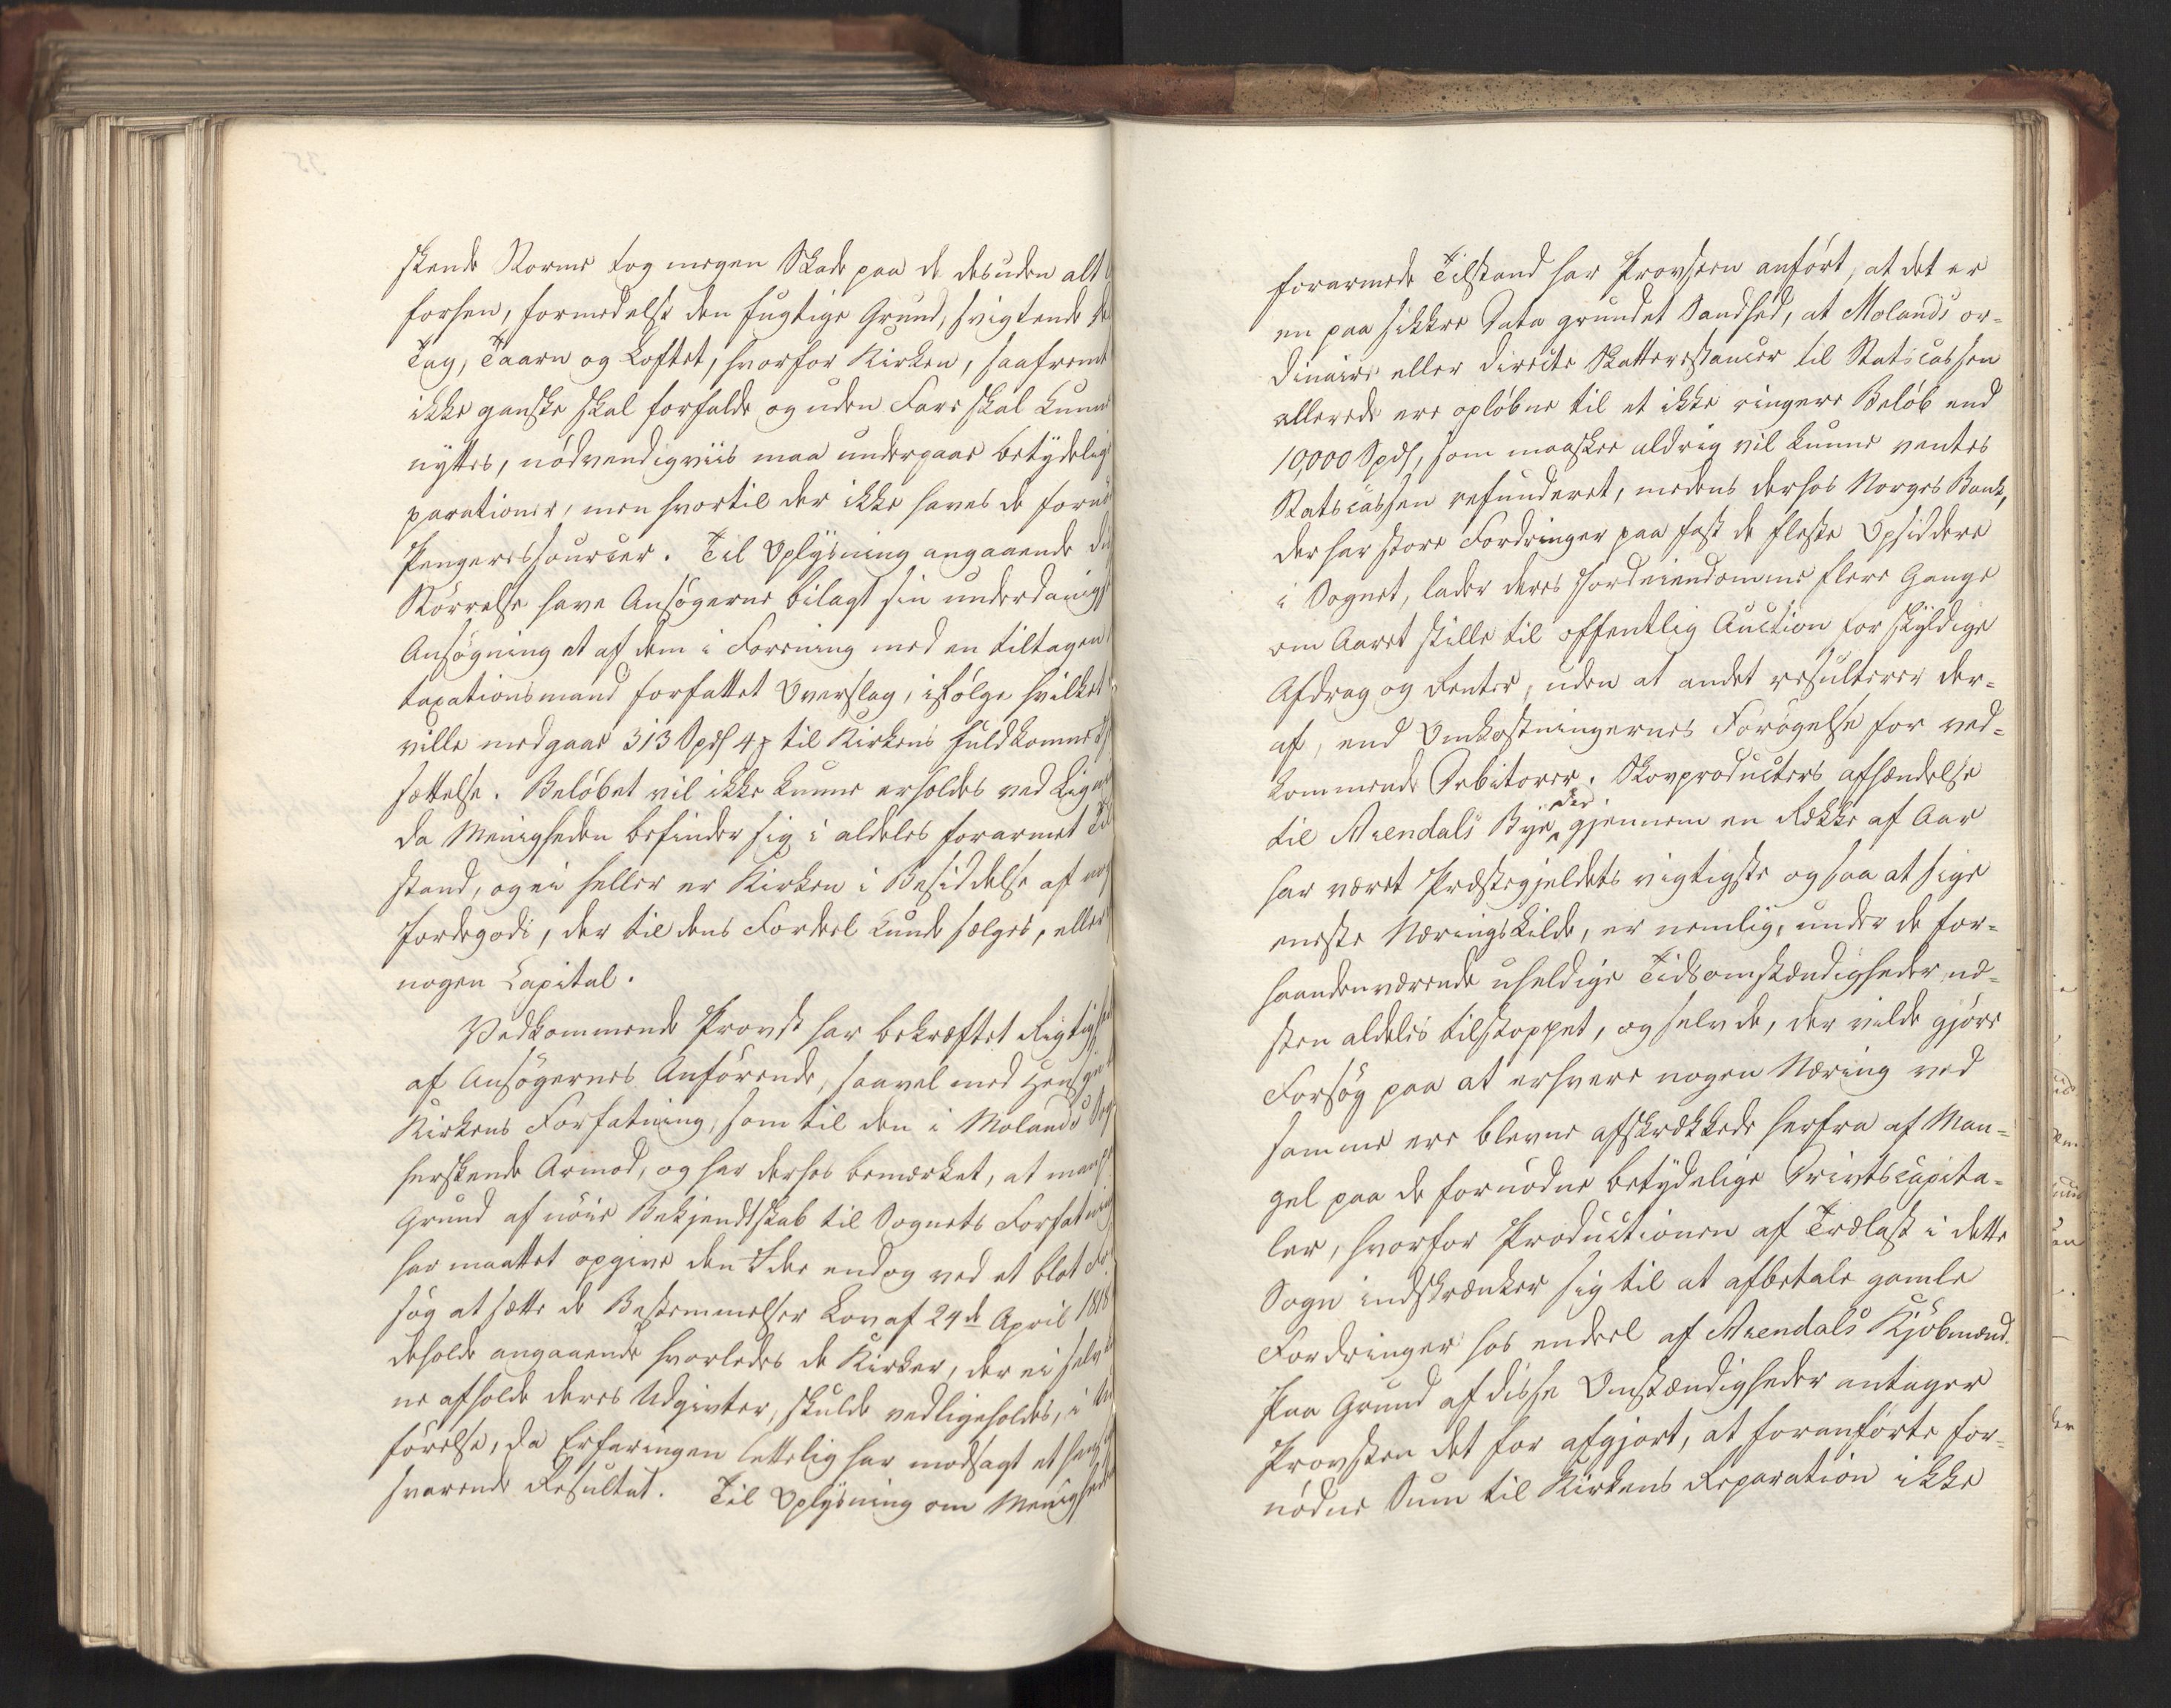 skende Storme tog megen Skade paa de desuden alt
forhen, formedelst den fugtige Grund, svigtende
Tag, Taarn og Loftet, hvorfor Kirken, saafremt
ikke ganske skal forfalde og uden Fare skal kunne
nyttes, nödvendigviis maa undergaae betydelig
parationer, men hvortil der ikke haves de fornö
Pengeressourcer. Til Oplysning angaaende
Störrelse have Ansögerne bilagt sin underdanigst
Ansögning et af dem i Forening med en tiltagen
taxationsmand forfattet Overslag, ifölge hvilket
ville medgaae 313 Spd 4 ß til Kirkens fuldkomne
sættelse. Belöbet vil ikke kunne erholdes ved Lign
da Menigheden befinder sig i aldeles forarmet Til
stand, og ei heller er Kirken i Besiddelse af no
Jordegods, der til dens Fordeel kunde sælges, eller
nogen Capital.
Vedkommende Provst har bekræftet Rigtighed
af Ansögernes Anförende, saavel med Hensyn
Kirkens Forfatning, som til den i Molands Sog
herskende Armod, og har derhos bemærket, at man
Grund af nöie Bekjendtskab til Sognets Forfatning
har maattet opgive den Idee endog ved et blot For
sög at sætte de Bestemmelser Lov af 24de April 1818
deholde angaaende hvorledes de Kirker, der ei selv
ne afholde deres Udgivter, skulde vedligeholdes, i Ud
förelse, da Erfaringen lettelig har modsagt et
svarende Resultat. Til Oplysning om Menighed
forarmede Tilstand har Provsten anfört, at det er
en paa sikkre Data grundet Sandhed, at Molands or-
dinaire eller directe Skatterestancer til Statscassen
allerede ere oplöbne til et ikke ringere Belöb end
10,000 Spd, som maaskee aldrig vil kunne ventes
Statscassen refunderet, medens derhos Norges Bank,
der har store Fordringer paa fast de fleste Opsiddere
i Sognet, lader deres Jordeiendomme flere Gange
om Aaret stille til offentlig Auction for skyldige
Afdrag og Renter, uden at andet resulterer der-
af, end Omkostningernes Forögelse for ved-
kommende Debitorer. Skovproducters afhændelse
til Arendals Bye, der gjennem en Række af Aar
har været Præstegjeldets vigtigste og saa at sige
eneste Næringskilde, er nemlig, under de for-
haandenværende uheldige Tidsomstændigheder næ-
sten aldeles tilstoppet, og selv de, der vilde gjöre
Forsög paa at erhverve nogen Næring ved
samme ere blevne afskrækkede herfra af Man-
gel paa de fornödne betydelige Drivtscapita-
ler, hvorfor Productionen af Trælast i dette
Sogn indskrænker sig til at afbetale gamle
Fordringer hos endeel af Arendals Kjöbmænd.
Paa Grund af disse Omstændigheder antager
Provsten det for afgjort, at foranförte for-
nödne Sum til Kirkens Reparation ikke